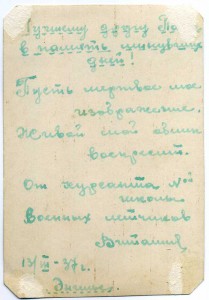 Лучшему другу По
в память минувших
дней!
Пусть мертвое мое
изображение.
Живой
воскресит.
От курсанта № ой
школы
Военных летчиков
Виталия
13/III-37 г.